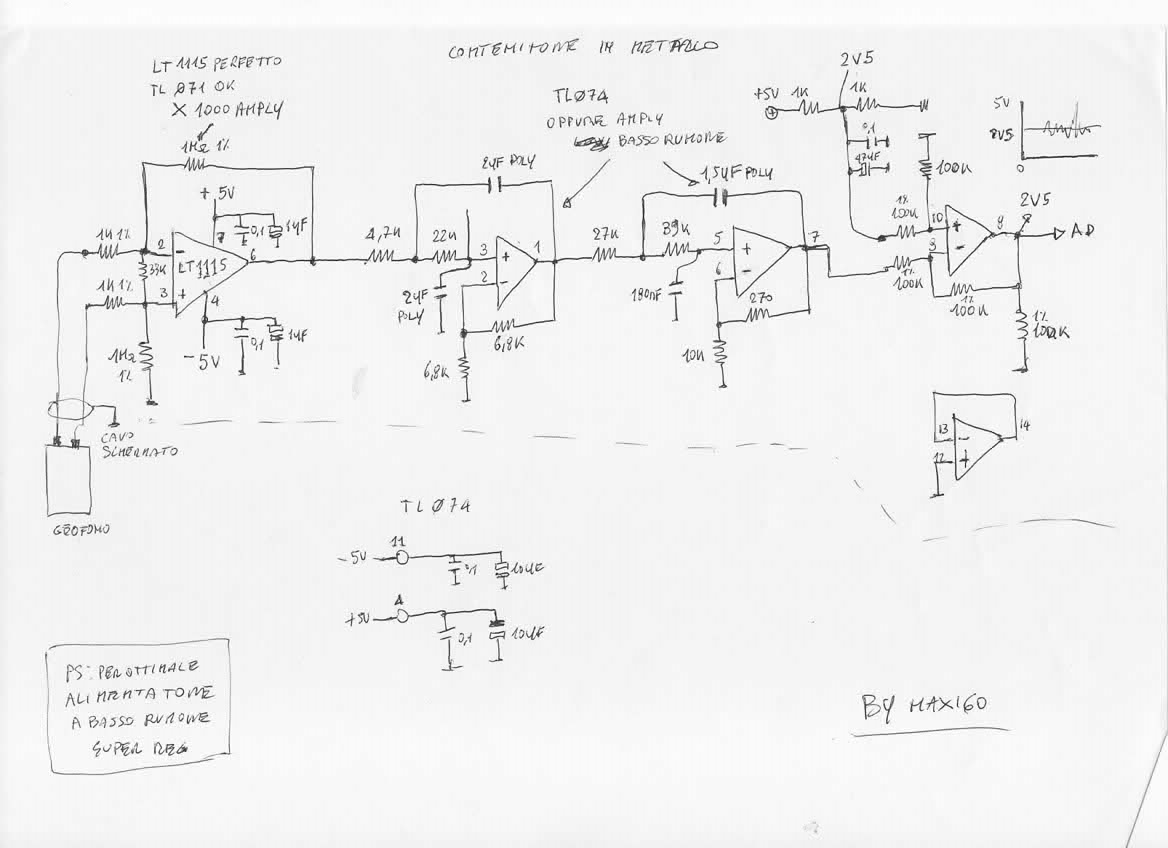 CONTENITORE IN METALLO
LT 1115 PERFETTO
TL Ø71 OK
X 1000 AMPLY
1MΩ 1%
+5V
7
0,1
1µF
1K 1%
2
-
LT1115
6
33K
1K 1%
3
+
4
0,1
1µF
-5V
1MΩ
1%
CAVO
SCHERMATO
GEOFONO
TLØ74
OPPURE AMPLY
BASSO RUMORE
2µF POLY
4,7K
22K
3
+
1
2
-
2µF
POLY
6,8K
6,8K
1,5µF POLY
27K
39K
5
+
7
6
-
180nF
270
10K
2V5
+5V
1K
1K
0,1
47µF
100K
5V
2V5
0
1%
100K
10
+
8
2V5
AD
9
-
1%
100K
1%
100K
1%
100K
13
-
14
12
+
TL Ø74
-5V
11
0,1
10µF
+5V
4
0,1
10µF
PS: PER OTTIMALE
ALIMENTATORE
A BASSO RUMORE
SUPER REG
BY MAXI60